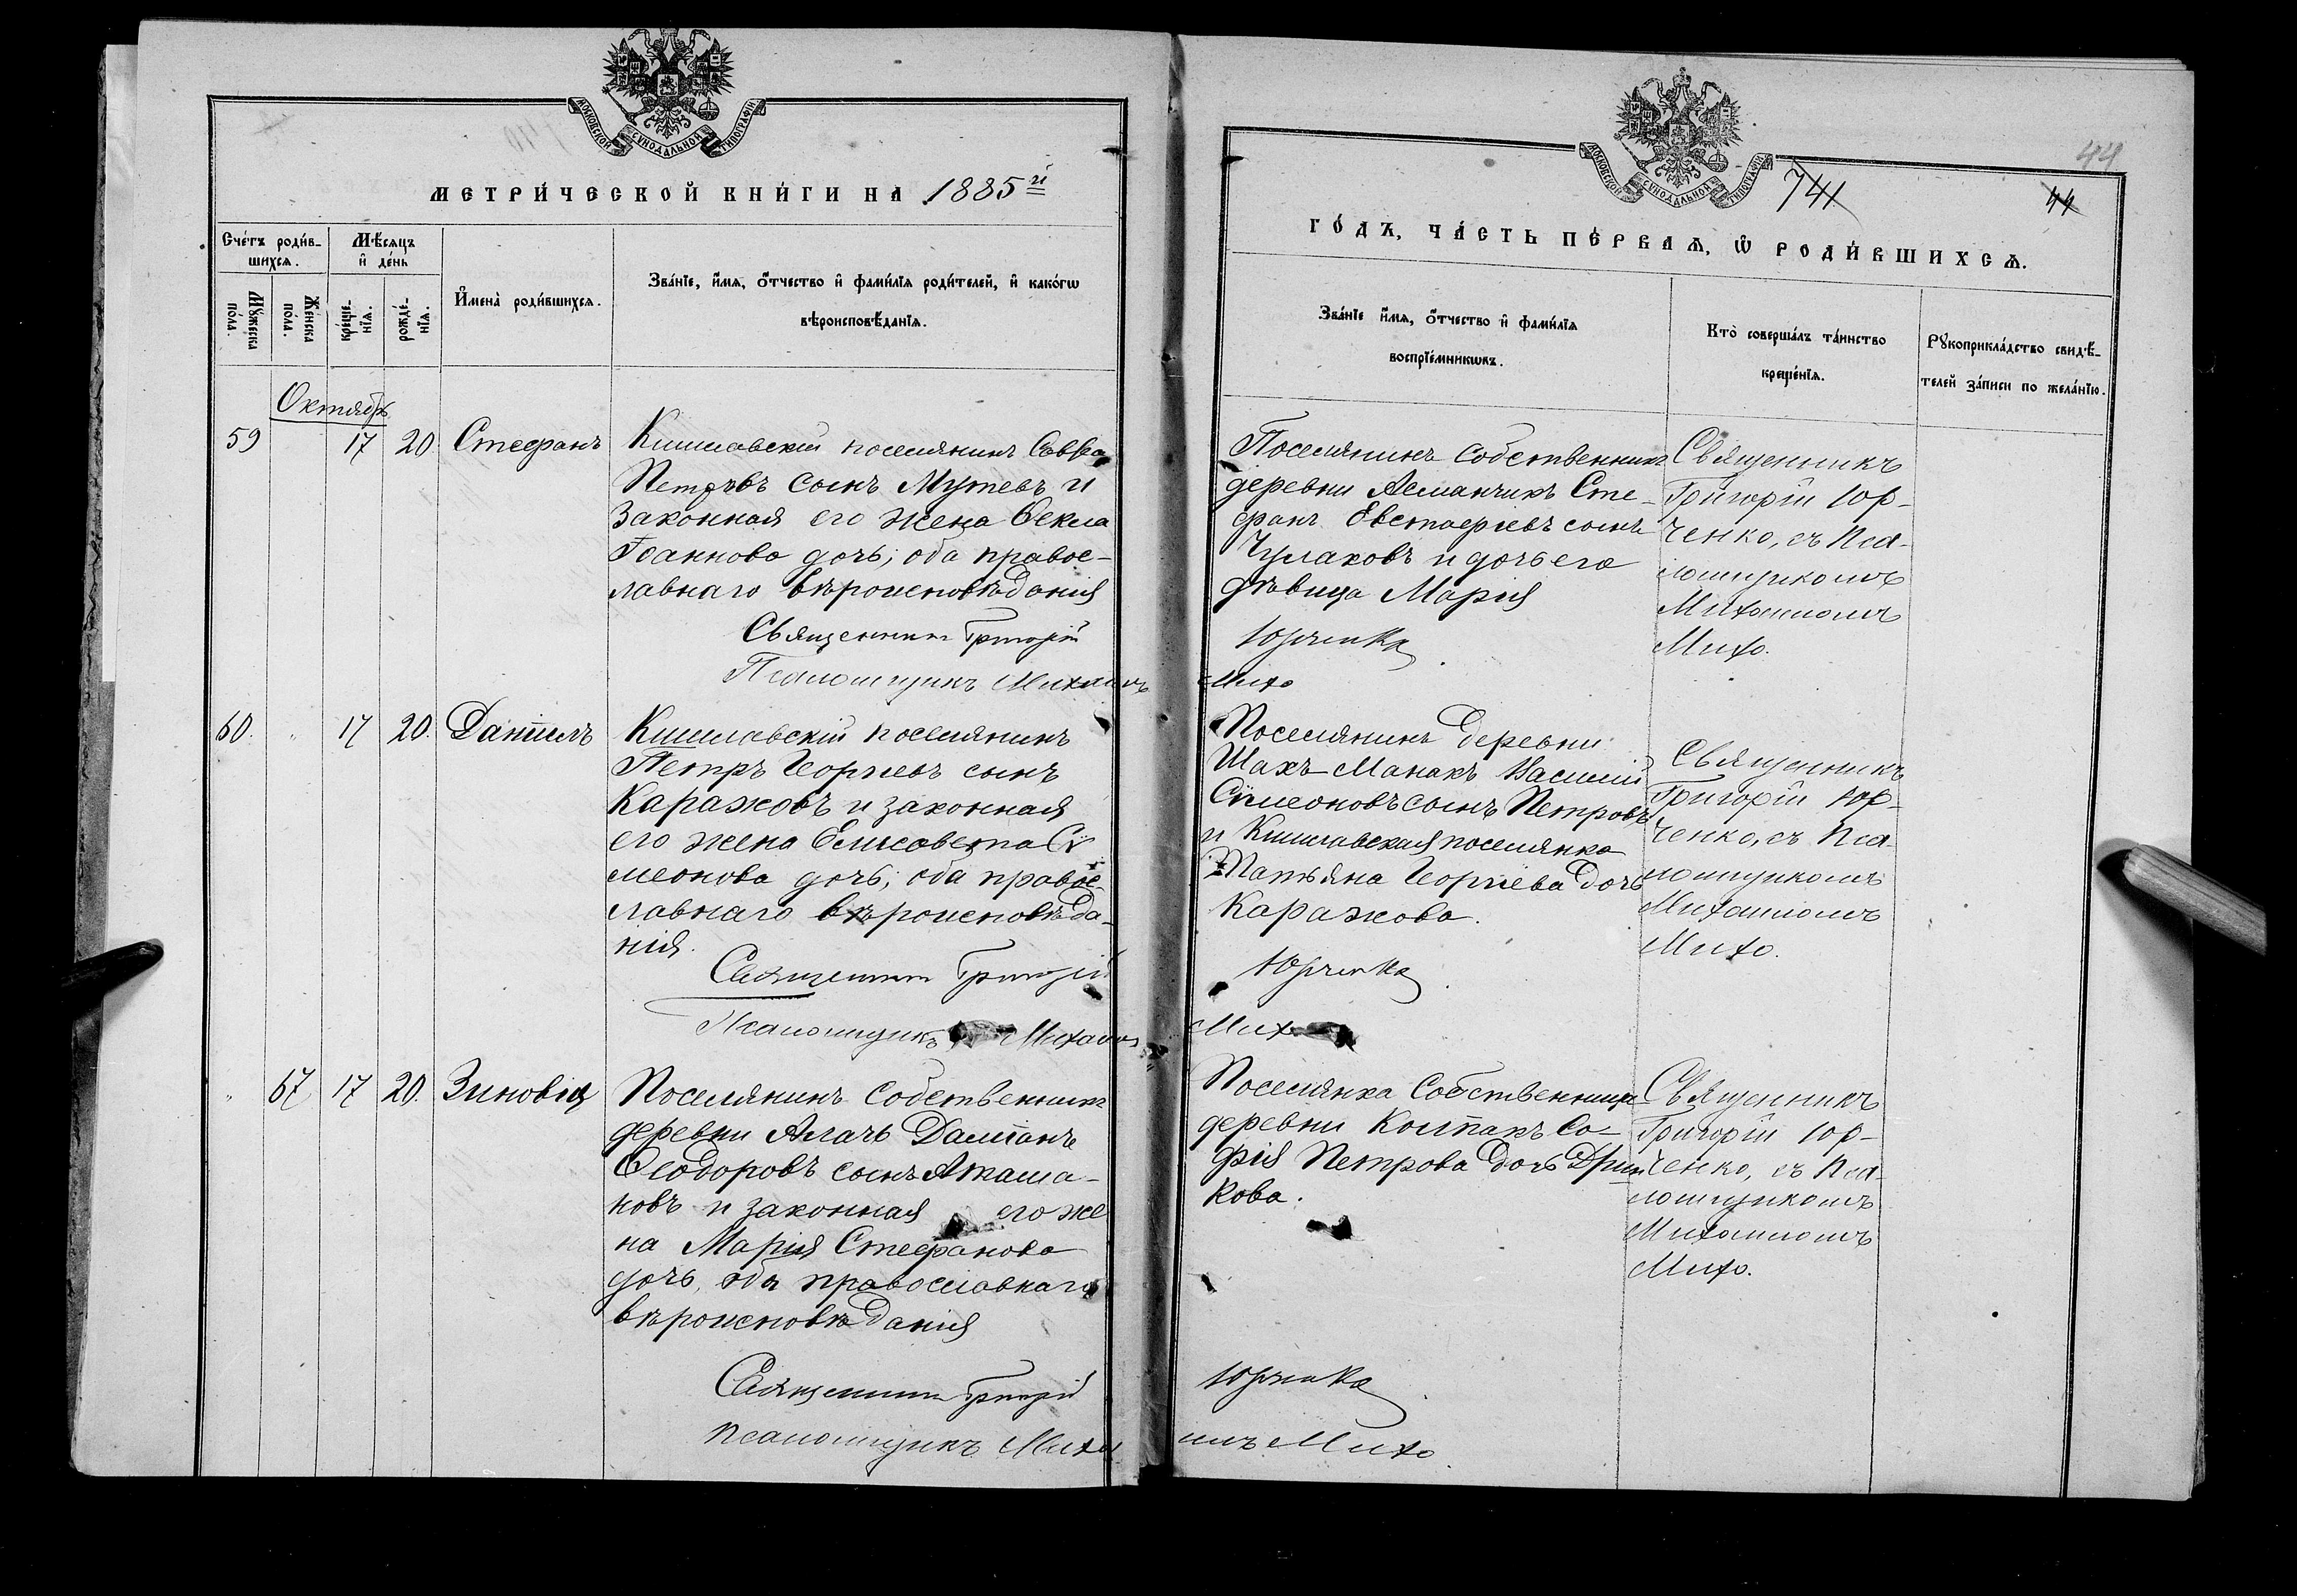 МОСКОВСКОЙ СѴНОДАЛЬНОЙ ТИПОГРАФІИ
МЕТРИ́ЧЕСКОЙ КНИ́ГИ НА 1885й
Сче́тъ роди́в-
шихсѧ.
Мѣ́сяцъ
и҆ де́нь
Мꙋ́жеска
по́ла.
Же́нска
по́ла.
креще́-
нїѧ.
рожде́-
нїѧ.
И҆мена̀ роди́вшихсѧ.
Зва́нїе, и҆́мѧ, ѻ҆́тчество и҆ фами́лїѧ роди́телей, и҆ како́гѡ
вѣроисповѣ́данїѧ.
Октябрь
59 17 20 Стефанъ
Кишлавскій поселянинъ Савва
Петровъ сынъ Мутевъ и
законная его жена Ѳекла
Іоаннова дочь; оба правос-
лавнаго вѣроисповѣданія
Священникъ Григорій
Псаломщикъ Михаилъ
60. " 17 20. Даніилъ
Кишлавскій поселянинъ
Петръ Георгіевъ сынъ
Каражовъ и законная
его жена Елисавета Сѵ
меонова дочь; оба правос-
лавнаго вѣроисповѣда-
нія.
Священникъ Григорій
Псаломщикъ Михаилъ
" 67 17 20. Зиновія
Поселянинъ собственникъ
деревни Алачъ Даміанъ
Ѳеодоровъ сынъ Аташа-
новъ и законная его же
на Марія Стефанова
дочь, оба православнаго
вѣроисповѣданія
Священникъ Григорій
Псаломщикъ Миха
МОСКОВСКОЙ СѴНОДАЛЬНОЙ ТИПОГРАФІИ
741
44
44
ГО́ДЪ, ЧА́СТЬ ПЕ́РВАѦ, Ѡ҆ РОДИ́ВШИХСѦ.
Зва́нїе и҆́мѧ, ѻ҆́тчество и҆ фами́лїѧ
воспрїе́мникѡвъ.
Кто̀ соверша́лъ та́инство
креще́нїѧ.
Рꙋкоприкла́дство свидѣ́-
телей за́писи по жела́нїю.
Поселянинъ собственникъ
деревни Асманчикъ Сте-
фанъ Евстафіевъ сынъ
Чулаковъ и дочь его
дѣвица Марія
Юрченко
Михо
Священникъ
Григорій Юр-
ченко, съ Пса-
ломщикомъ
Михаиломъ
Михо.
Поселянинъ деревни
Шахъ-Манакъ Василій
Сѵмеоновъ сынъ Петровъ
и Кишлавская поселянка
Татьяна Георгіева дочь
Каражова.
Юрченко
Михо
Священникъ
Григорій Юр-
ченко, съ Пса-
ломщикомъ
Михаиломъ
Михо.
Поселянка Собственница
деревни Коктакъ Со-
фія Петрова дочь Дрин
кова.
Юрченко
илъ Михо
Священникъ
Григорій Юр-
ченко, съ Пса-
ломщикомъ
Михаиломъ
Михо.